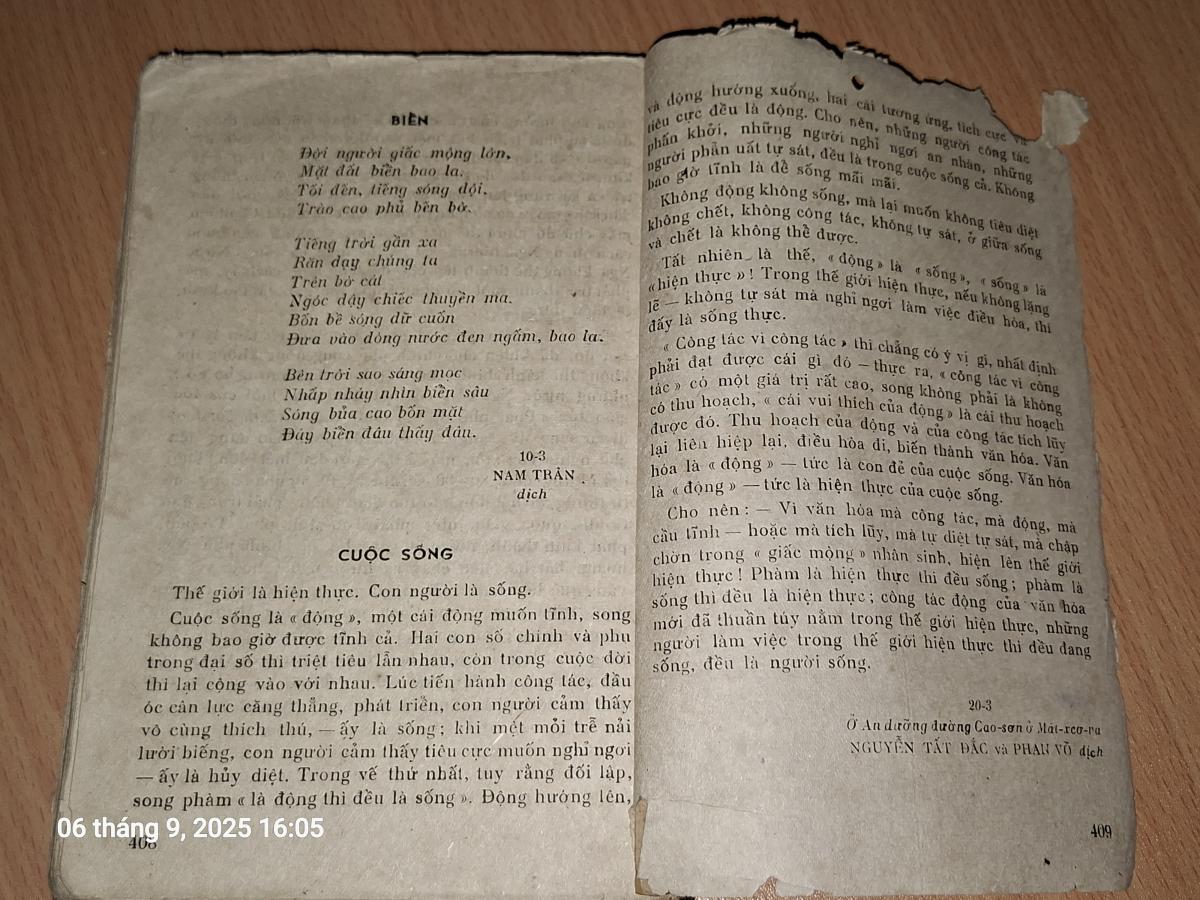 BIỀN
Đời người giấc mộng lớn,
Mặt đất biển bao la.
Tối đến, tiếng sóng dội,
Trào cao phủ bên bờ.
Tiếng trời gần xa
Răn dạy chúng ta
Trên bờ cát
Ngóc dậy chiếc thuyền ma.
Bốn bề sóng dữ cuốn
Đưa vào dòng nước đen ngấm, bao la.
Bên trời sao sáng mọc
Nhấp nháy nhìn biển sâu
Sóng bủa cao bốn mặt
Đáy biển đâu thấy đâu.
10-3
NAM TRÂN
dịch
CUỘC SỐNG
Thế giới là hiện thực. Con người là sống.
Cuộc sống là « động », một cái động muốn tĩnh, song
không bao giờ được tĩnh cả. Hai con số chính và phụ
trong đại số thì triệt tiêu lẫn nhau, còn trong cuộc đời
thì lại cộng vào với nhau. Lúc tiến hành công tác, đầu
óc cân lực căng thẳng, phát triển, con người cảm thấy
vô cùng thích thú, — ấy là sống ; khi mệt mỏi trễ nải
lười biếng, con người cảm thấy tiêu cực muốn nghỉ ngơi
— ấy là hủy diệt. Trong vế thứ nhất, tuy rằng đối lập,
song phàm « là động thì đều là sống ». Động hướng lên,
408
và động hướng xuống, hai cái tương ứng, tích cực và
tiêu cực đều là động. Cho nên, những người công tác
phấn khởi, những người nghỉ ngơi an nhàn, những
người phẫn uất tự sát, đều là trong cuộc sống cả. Không
bao giờ tĩnh là để sống mãi mãi.
Không động không sống, mà lại muốn không tiêu diệt
không chết, không công tác, không tự sát, ở giữa sống
và chết là không thể được.
Tất nhiên là thế, « động » là « sống », « sống » là
« hiện thực » ! Trong thế giới hiện thực, nếu không lặng
lẽ — không tự sát mà nghỉ ngơi làm việc điều hòa, thì
đấy là sống thực.
« Công tác vì công tác » thì chẳng có ý vị gì, nhất định
phải đạt được cái gì đó — thực ra, « công tác vì công
tác » có một giá trị rất cao, song không phải là không
có thu hoạch, « cái vui thích của động » là cái thu hoạch
được đó. Thu hoạch của động và của công tác tích lũy
lại liên hiệp lại, điều hòa đi, biến thành văn hóa. Văn
hóa là « động » — tức là con đẻ của cuộc sống. Văn hóa
là « động » — tức là hiện thực của cuộc sống.
Cho nên : — Vì văn hóa mà công tác, mà động, mà
cầu tĩnh — hoặc mà tích lũy, mà tự diệt tự sát, mà chập
chờn trong « giấc mộng » nhân sinh, hiện lên thế giới
hiện thực ! Phàm là hiện thực thì đều sống ; phàm là
sống thì đều là hiện thực ; công tác động của văn hóa
mới đã thuần túy nằm trong thế giới hiện thực, những
người làm việc trong thế giới hiện thực thì đều đang
sống, đều là người sống.
20-3
Ở An dưỡng đường Cao-sơn ở Mát-xcơ-va
NGUYỄN TẤT ĐẮC và PHAN VÕ dịch
409
06 tháng 9, 2025 16:05